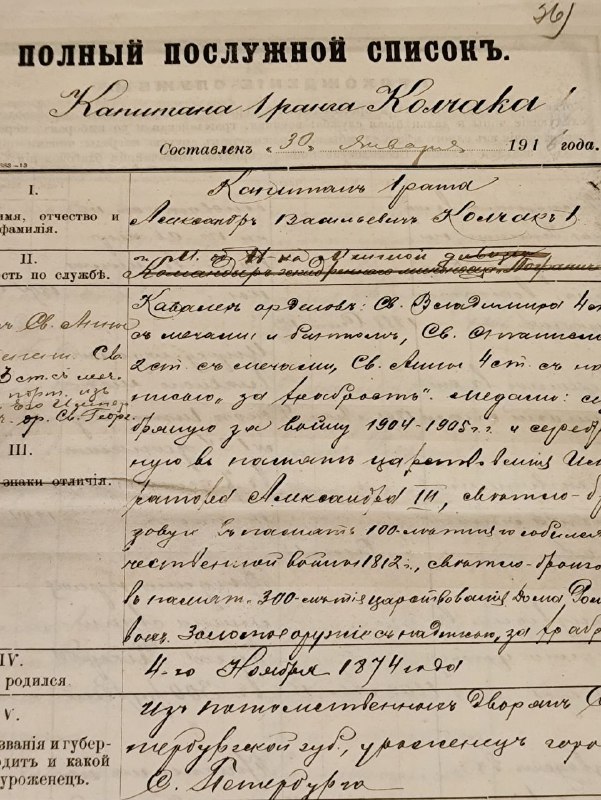 26)
ПОЛНЫЙ ПОСЛУЖНОЙ СПИСОКЪ.
Капитана 1 ранга Колчака 1
Составленъ „30„ января 191 года.
I.
имя, отчество и
фамилія.
Капитанъ 1 ранга
Александръ Васильевичъ Колчакъ 1
II.
сть по службѣ.
Минной дивизіи
III.
знаки отличія.
Св. Анны
3 ст. съ меч.
порт. изъ
ор. Св. Георг.
Кавалеръ орденовъ: Св. Владиміра 4 ст
съ мечами и бантомъ, Св. Станислава
2 ст. съ мечами, Св. Анны 4 ст. съ на
писью „за храбрость". Медали: се
бряную за войну 1904-1905 г.г. и серебря
ную въ память царствованія Импе
ратора Александра III, свѣтло-бро
зовую въ память 100-лѣтняго юбилея
чественной войны 1812 г., свѣтло-бронзо
въ память 300-лѣтія царствованія Дома Ром
выхъ. Золотое оружіе съ надписью „за храбр
IV.
родился
4-го Ноября 1874 года
V.
званія и губер-
одитъ и какой
уроженецъ.
Изъ потомственныхъ дворянъ С.
тербургской губ., уроженецъ горо
С. Петербурга